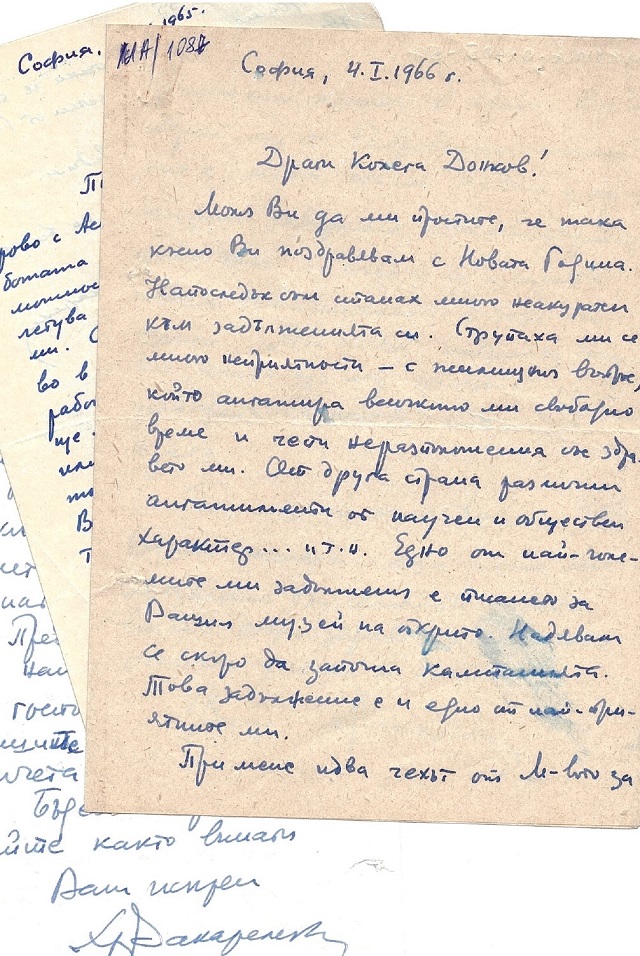 София, 4.I.1966 г.
Драги Колега Донков!
Моля Ви да ми простите, че така
късно Ви поздравявам с Новата Година.
Напоследък съм станах много неакуратен
към задълженията си. Струпаха ми се
много неприятности – с жилищния въпрос,
който ангажира всичкото ми свободно
време и чести неразположения със здра-
вето ми. От друга страна различни
ангажименти от научен и обществен
характер... и т.н. Едно от най-голе-
мите ми задължения е писането за
Вашия музей на открито. Надявам
се скоро да започна кампанията.
Това задължение е и едно от най-при-
ятните ми.
При мене идва чехът от М-вото за
София. 1965.
МА/1087
рово с
ботата
летува
ми.
во в
рабо
ще
Пре
гости
Бъде
йте както винаги
Ваш искрен
Хр. Вакарелски